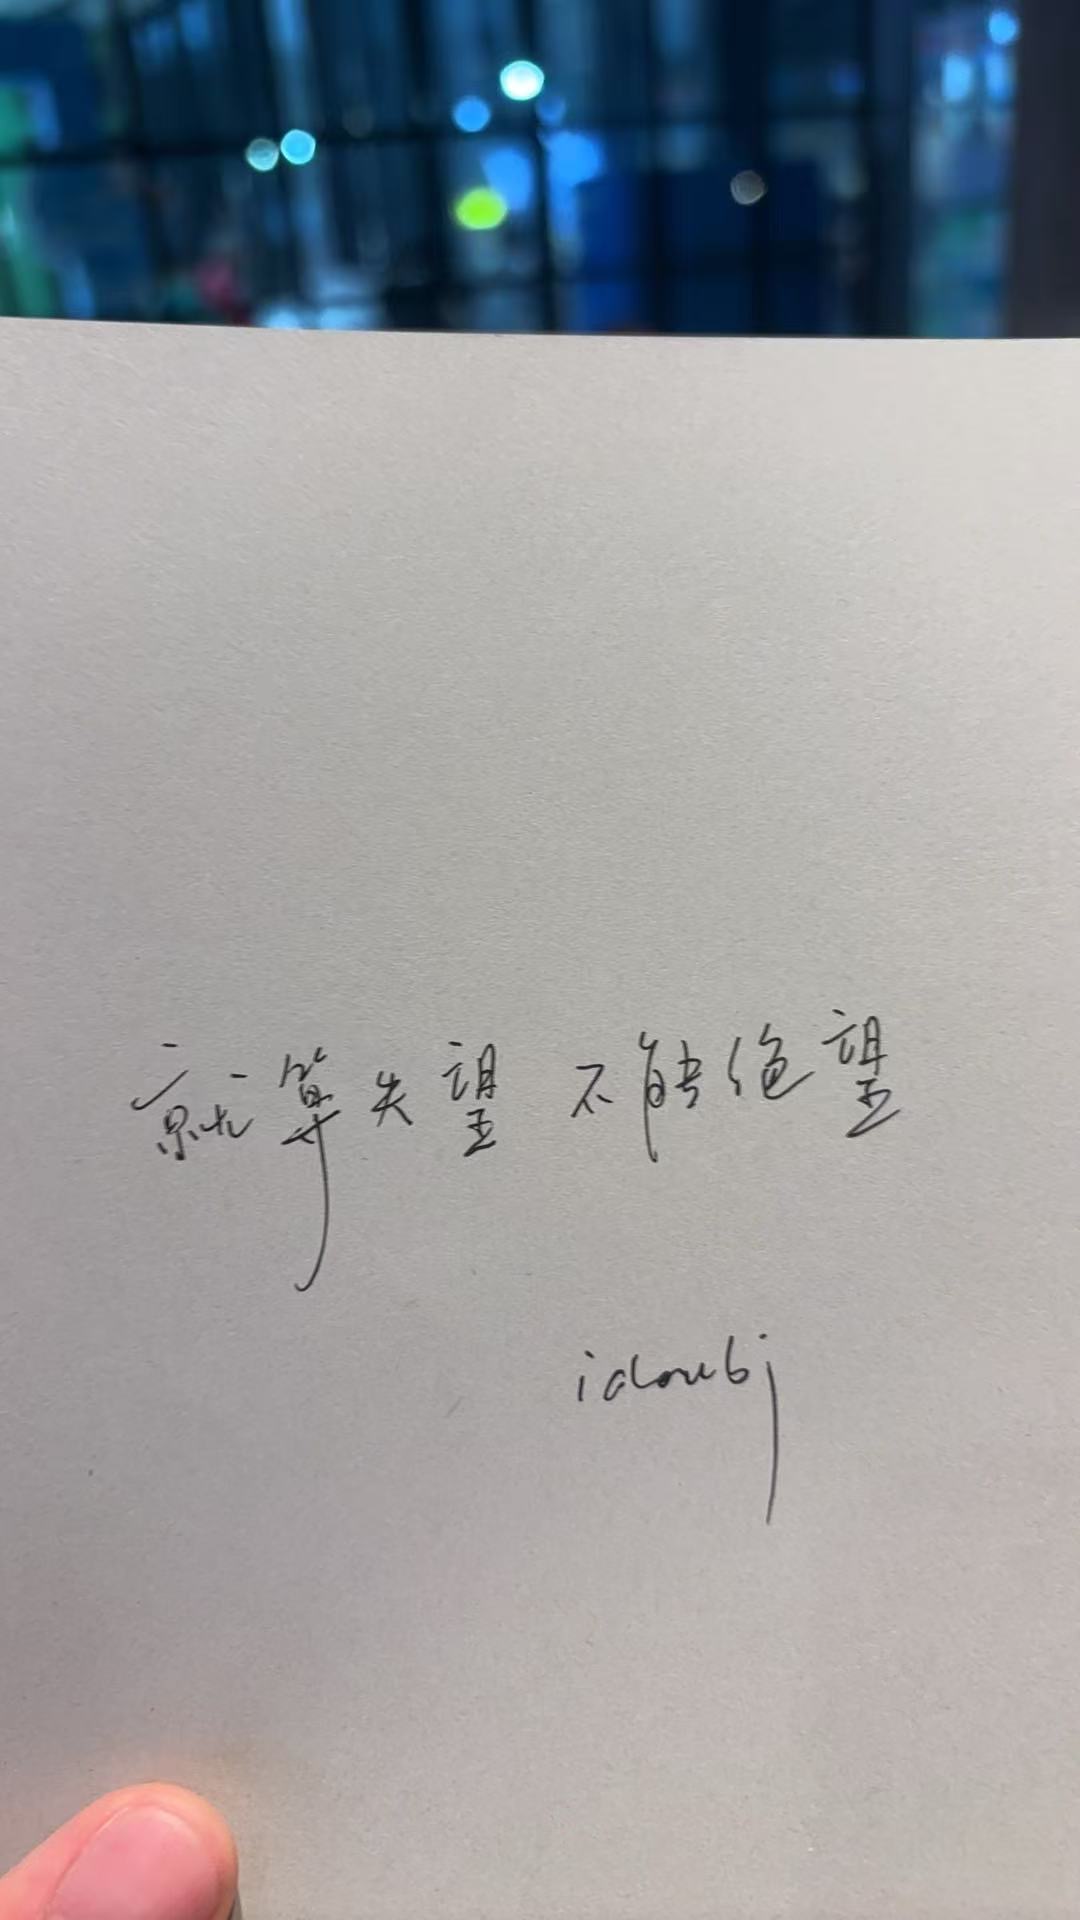 就算失望 不能绝望
idoubj